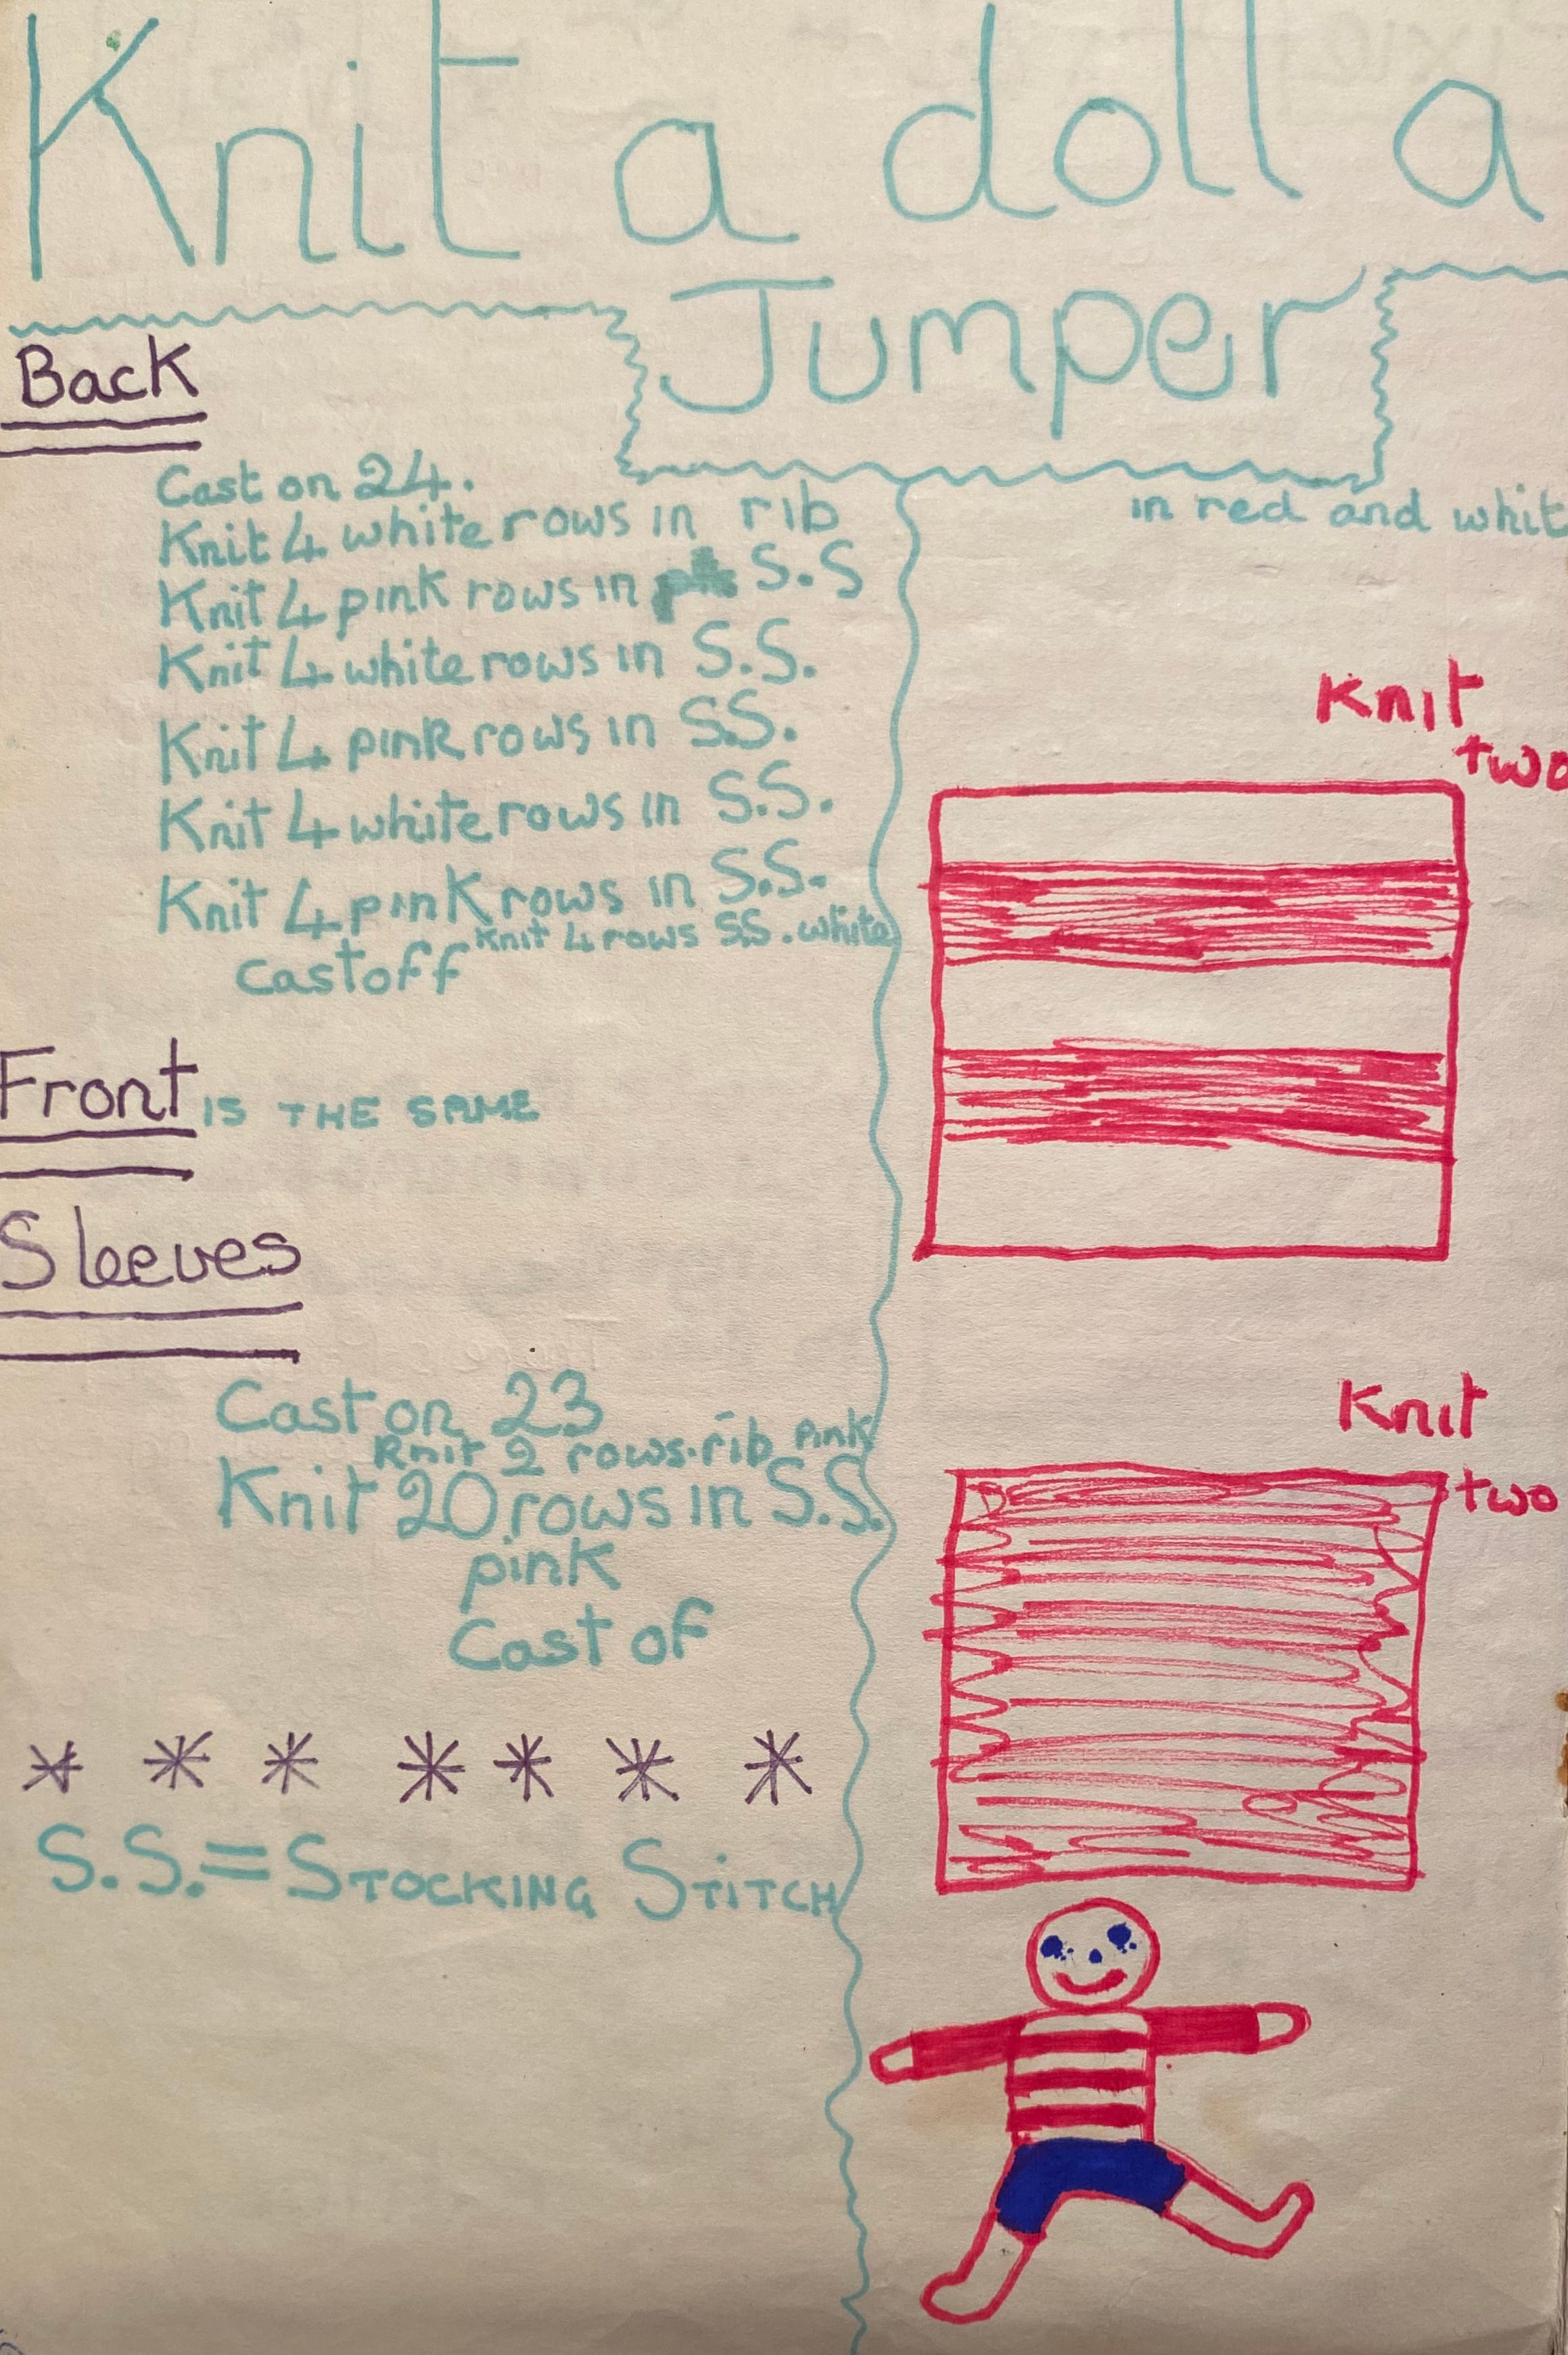 Knit a doll a
Jumper
Back
Cast on 24.
Knit 4 white rows in rib
Knit 4 pink rows in S.S
Knit 4 white rows in S.S.
Knit 4 pink rows in S.S.
Knit 4 white rows in S.S.
Knit 4 pink rows in S.S.
Knit 4 rows S.S. white
Cast off
Front IS THE SAME
Sleeves
Cast on 23
Knit 2 rows. rib pink
Knit 20 rows in S.S.
pink
Cast of
* * * * * * *
S.S. = STOCKING STITCH
in red and whit
Knit
two
Knit
two